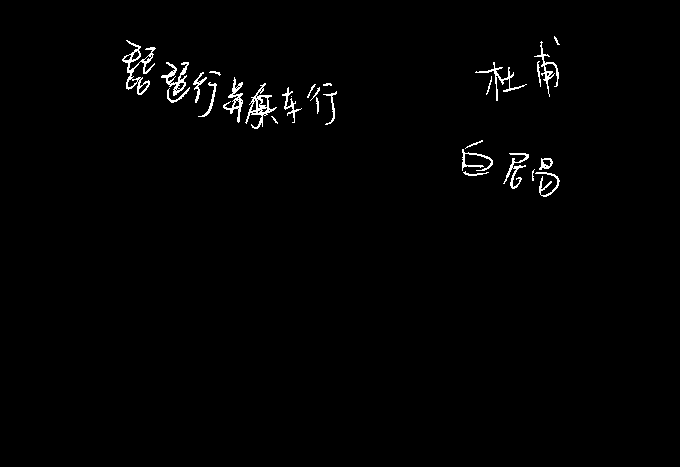 琵琶行并兵车行 杜甫
白居易